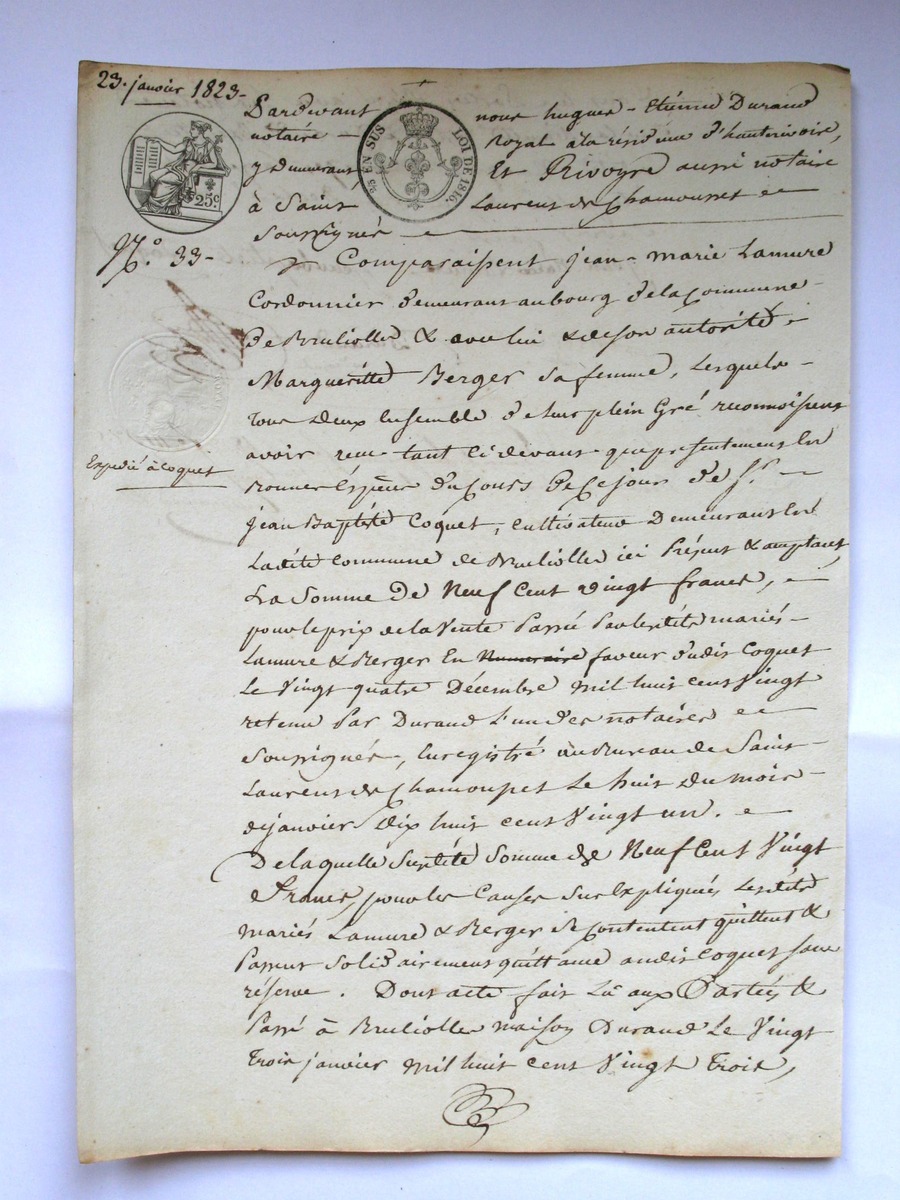 23. janvier 1823-
Pardevant nous hugues - Etienne Durand
notaire - Royal à la résidence d'hauterivoire,
y demeurant, Et Rivoyre aussi notaire
à Saint Laurent de Chamousset
Soussignés
25c
25 EN SUS LOI DE 1816.
N.º 33-
Comparaissent jean-marie Lamure
Cordonnier demeurant au bourg de la Commune
De Brulliolle & avec lui & de son autorité
Margueritte Berger sa femme, Lesquels
tous deux Ensemble de leur plein Gré reconnoissent
avoir reçu tant Cidevant que présentement En
Expedié à Coquet
bonnes Espèces du Cours de Ce jour de Sr
jean Baptiste Coquet, Cultivateur Demeurant En
Ladite Commune de Brulliolle ici Présent & acceptant
La Somme De Neuf Cent vingt francs,
pour le prix de la Vente Passé Par lesdits mariés-
Lamure & Berger En Numeraire faveur dudit Coquet
Le Vingt quatre Décembre mil huit cent Vingt
retenu Par Durand L'un des notaires
Soussignés, Enregistré au Bureau de Saint-
Laurent de Chamousset Le huit du mois-
de janvier dix huit cent Vingt un.
De laquelle Susdite Somme de Neuf Cent Vingt
francs, pour les Causes Sus Expliqués Lesdits
mariés Lamure & Berger Se Contentent quittent &
Passent Solidairement quittance audit Coquet sans
réserve. Dont acte fait Lû aux Parties &
Passé à Brulliolle maison Durand Le Vingt
trois janvier mil huit cent Vingt trois,